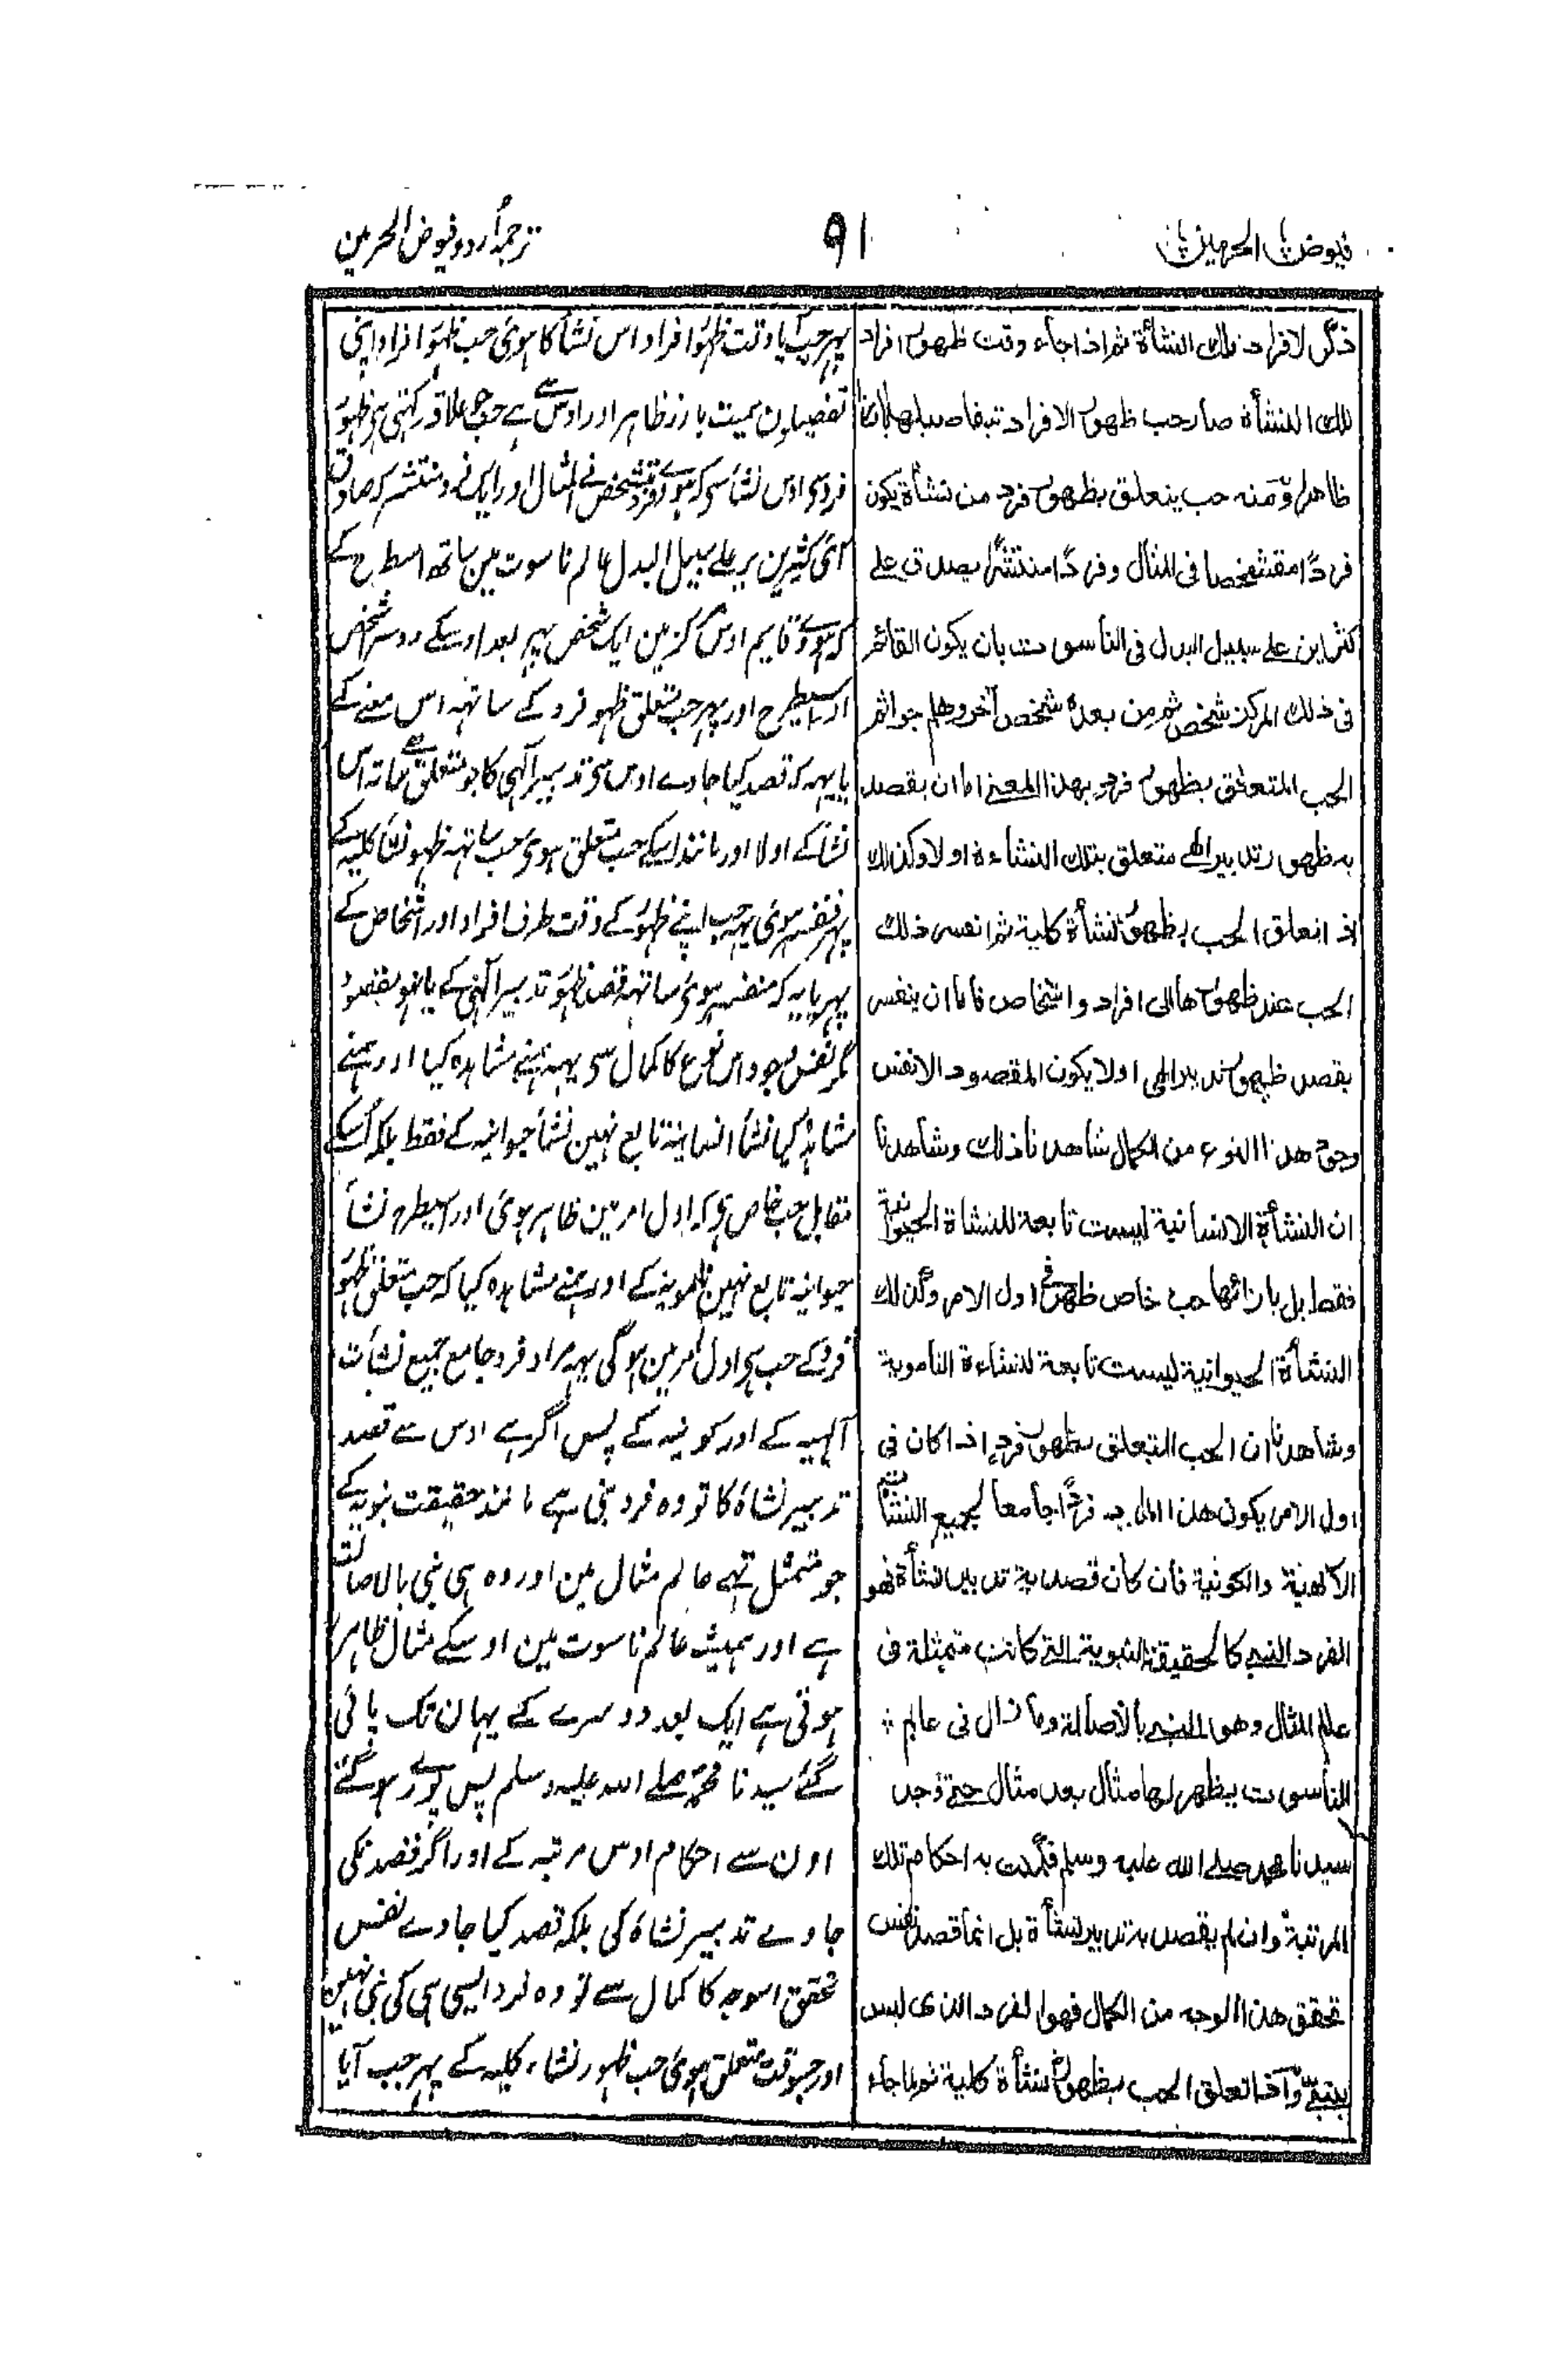 فيوض الحرمين
91
ترجمہ اردو فیوض الحرمین
ذكر لافراد تلك النشأة ثم اذا جاء وقت ظهور افراد
تلك النشأة صار حب ظهور الافراد بتفاصيلها بارزا
ظاهرا ومنه حب يتعلق بظهور فرد من نشأة يكون
فردًا متشخصا فى المثال وفردًا منتشرًا يصدق على
كثيرين على سبيل البدل فى الناسوت بان يكون القائم
فى ذلك المركز شخص ثم من بعده شخص آخر وهلم جرا ثم
الحب المتعلق بظهور فرد بهذا المعنى اما ان يقصد
به ظهور تدبير الهى متعلق بتلك النشاءة اولا وكذلك
اذا تعلق الحب بظهور نشأة كلية ثم انفسر ذلك
الحب عند ظهورها الى افراد و اشخاص فاما ان ينفسر
بقصد ظهور تدبير الهى اولا يكون المقصود الا نفس
وجود هذا النوع من الكمال شاهدنا ذلك وشاهدنا
ان النشأة الانسانية ليست تابعة للنشاة الحيوانية
فقط بل بازائها حب خاص ظهر فى اول الامر وكذلك
النشأة الحيوانية ليست تابعة للنشاءة الناموية
وشاهدنا ان الحب المتعلق بظهور فردٍ اذا كان فى
اول الامر يكون هذا المراد به فردًا جامعا لجميع النشأت
الالهية والكونية فان كان قصد به تدبير نشأة فهو
الفرد النبى كالحقيقة النبوية التى كانت متمثلة فى
عالم المثال وهو النبى بالاصالة وما زال فى عالم
الناسوت يظهر لها مثال بعد مثال حتى وجد
سيدنا محمد صلى الله عليه وسلم فكملت به احكام تلك
المرتبة وان لم يقصد به تدبير نشأة بل انما قصد نفس
تحقق هذا الوجه من الكمال فهو الفرد الذى ليس
بنبى وآذا تعلق الحب بظهور نشأة كلية ثم لما جاء
پہر جب آیا وقت ظہور افراد اس نشأ کا ہوئی حب ظہور افراد اپنی
تفصیلون سمیت بارز ظاہر اور اوس سے ہے حب جو علاقہ رکہتی ہی ظہور
فرد سی اوس نشأ سی کہ ہووے فرد متشخص فے المثال اور ایک فرد منتشر کہ صادق
آئی کثیرین پر علے سبیل البدل عالم ناسوت مین ساتھ اسطرح کے
کہ ہووے قایم اوس مرکز مین ایک شخص پہر بعد اوسکے دوسرا شخص
اور اسیطرح اور پہر حب متعلق ظہور فرد کے ساتہہ اس معنے کے
یا یہہ کہ قصد کیا جاوے اوس سی تدبیر آلہی کا جو متعلق ہے ساتہ اس
نشأ کے اولا اور مانند اسکے جب متعلق ہوی حب ساتہہ ظہور نشأ کلیہ کے
پہر منفسر ہوئی یہہ حب اپنے ظہور کے وقت طرف افراد اور اشخاص کے
پہر یا یہ کہ منفسر ہوئی ساتہہ قصد ظہور تدبیر آلہی کے یا نہو مقصود
مگر نفس وجود اس نوع کا کمال سی یہہ ہمنے مشاہدہ کیا اور ہمنے
مشاہدہ کیا نشأ انسانیۃ تابع نہین نشأ حیوانیہ کے فقط بلکہ اسکے
مقابل حب خاص ہی کہ اول امر مین ظاہر ہوئی اور اسیطرح نشأ
حیوانیہ تابع نہین نامویہ کے اور ہمنے مشاہدہ کیا کہ حب متعلق ظہور
فرد کے جب ہی اول امر مین ہوگی یہہ مراد فرد جامع جمیع نشأت
آلہیہ کے اور کونیہ کے پس اگر ہے اوس سے قصد
تدبیر نشاۃ کا تو وہ فرد نبی ہے مانند حقیقت نبویہ کے
جو متمثل تہے عالم مثال مین اور وہ ہی نبی بالاصالت
ہے اور ہمیشہ عالم ناسوت مین اوسکے مثال ظاہر
ہوتی ہے ایک بعد دوسرے کے یہان تک پائی
گئے سیدنا محمد صلے اللہ علیہ وسلم پس پورے ہو گئے
اون سے احکام اوس مرتبہ کے اور اگر قصد نکی
جاوے تدبیر نشاۃ کی بلکہ قصد کیا جاوے نفس
تحقق اسوجہ کا کمال سے تو وہ فرد ایسی ہی کی نبی نہین
اور جسوقت متعلق ہوئی حب ظہور نشاء کلیہ کے پہر جب آیا